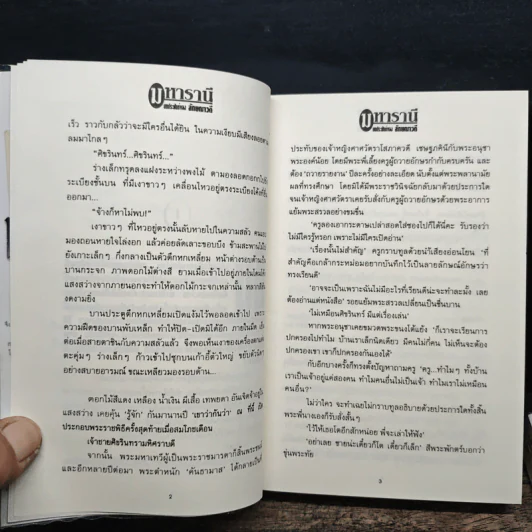 มหารานี
เร็ว ราวกับกลัวว่าจะมีใครอื่นได้ยิน ในความเงียบมีเสียงลอยตาม
ลมมาไกลๆ
“ศิขรินทร์...ศิขรินทร์...”
ร่างเล็กทรุดลงแฝงระหว่างพงไม้ ตามองลอดออกไป
ระเบียงชั้นบน ที่มีเงาขาวๆ เคลื่อนไหวอยู่ตรงระเบียง
ออกมา...
“จ้างก็หาไม่พบ!”
เงาขาวๆ ที่ไหวอยู่ตรงนั้นลับหายไปในความสลัว คน
มองถอนหายใจโล่งอก แล้วค่อยลัดเลาะขอบบึง ข้ามสะพาน
ยังเกาะเล็กๆ กึ่งกลางเป็นตัวตึกหกเหลี่ยม หน้าต่างรอบด้าน
บานกระจก ภาพดอกไม้ต่างสี ยามเมื่อเข้าไปอยู่ภายใน
แสงสว่างจากภายนอกจะทำให้ดอกไม้กระจกเหล่านั้น หลากสี
งดงามยิ่ง
บานประตูตึกหกเหลี่ยมเปิดแง้มไว้พอลอดเข้าไป
ความฝืดของบานพับเหล็ก ทำให้ปิด-เปิดมิได้อีก ภายในมืด
ต่อเมื่อสายตาชินกับความสลัวแล้ว จึงพอเห็นเงาของเครื่อง
ตะคุ่มๆ ร่างเล็กๆ ก้าวเข้าไปซุกบนเก้าอี้ตัวใหญ่ ขยับตัว
อย่างสบายอารมณ์ ขณะเหลียวมองรอบด้าน...
ดอกไม้สีแดง เหลือง น้ำเงิน ผีเสื้อ เทพยดา อันเจิดจ้า
แสงสว่าง เคยคุ้น ‘รู้จัก’ กันมานานปี ‘เขาว่ากันว่า’ ณ ที่นี้
ประกอบพระราชพิธีครั้งสุดท้ายเมื่อสมโภชเดือน
เจ้าชายศิขรินทรามหิศราบดี
จากนั้น พระมหาเทวีผู้เป็นพระราชมารดาก็สิ้นพระ
และอีกหลายปีต่อมา พระตำหนัก ‘คันธามาส’ ได้กลาย
2
มหารานี
ประทับของเจ้าหญิงศาศวัตราโสภาควดี เชษฐภคินีกับพระอนุชา
พระองค์น้อย โดยมีพระพี่เลี้ยงครูผู้ถวายอักษรกำกับครบครัน และ
ต้อง ‘ถวายรายงาน’ ปีละครั้งอย่างละเอียด นับตั้งแต่พระพลานามัย
ผลที่ทรงศึกษา โดยมิได้มีพระราชวินิจฉัยกลับมาด้วยประการใด
จนเจ้าหญิงศาศวัตราเคยรับสั่งกับครูผู้ถวายอักษรด้วยพระอาการ
แย้มพระสรวลอย่างขมขื่น
“ครูลองเอากระดาษเปล่าสอดใส่ซองไปก็ได้นี่คะ รับรองว่า
ไม่มีใครรู้หรอก เพราะไม่มีใครเปิดอ่าน”
“เรื่องนั้นไม่สำคัญ” ครูกราบทูลด้วยน้ำเสียงอ่อนโยน “ที่
สำคัญคือเกล้ากระหม่อมอยากบันทึกไว้เป็นลายลักษณ์อักษรว่า
ทรงเรียนดี”
“อาจจะเป็นเพราะฉันไม่มีอะไรที่เรียนดีน่ะจะทำละมั้ง เลย
ต้องอ่านแต่หนังสือ” รอยแย้มพระสรวลเปลี่ยนเป็นชื่นบาน
“ไม่เหมือนศิขรินทร์ มีแต่เรื่องเล่น”
หากพระอนุชาเคยขมวดพระขนงโต้แย้ง “ก็เราจะเรียนการ
ปกครองไปทำไม บ้านเราเล็กนิดเดียว มีคนไม่กี่คน ไม่เห็นจะต้อง
ปกครองเขา เขาก็ปกครองกันเองได้”
กับอีกบางครั้งก็ทรงตั้งปัญหาถามครู “ครู...ทำไมๆ ทั้งบ้าน
เราเป็นเจ้าอยู่แค่สองคน ทำไมคนอื่นไม่เป็นเจ้า ทำไมเราไม่เหมือน
คนอื่น?”
ไม่ว่าใคร จะทำเฉยไม่กราบทูลอธิบายด้วยประการใดทั้งสิ้น
พระพี่นางเองก็รับสั่งสั้นๆ
“ไว้ให้เธอโตอีกสักหน่อย พี่จะเล่าให้ฟัง”
“อย่าเลย ชายน่ะเดี๋ยวก็โต เดี๋ยวก็เล็ก” สีพระพักตร์บอกว่า
ขุ่นพระทัย
3